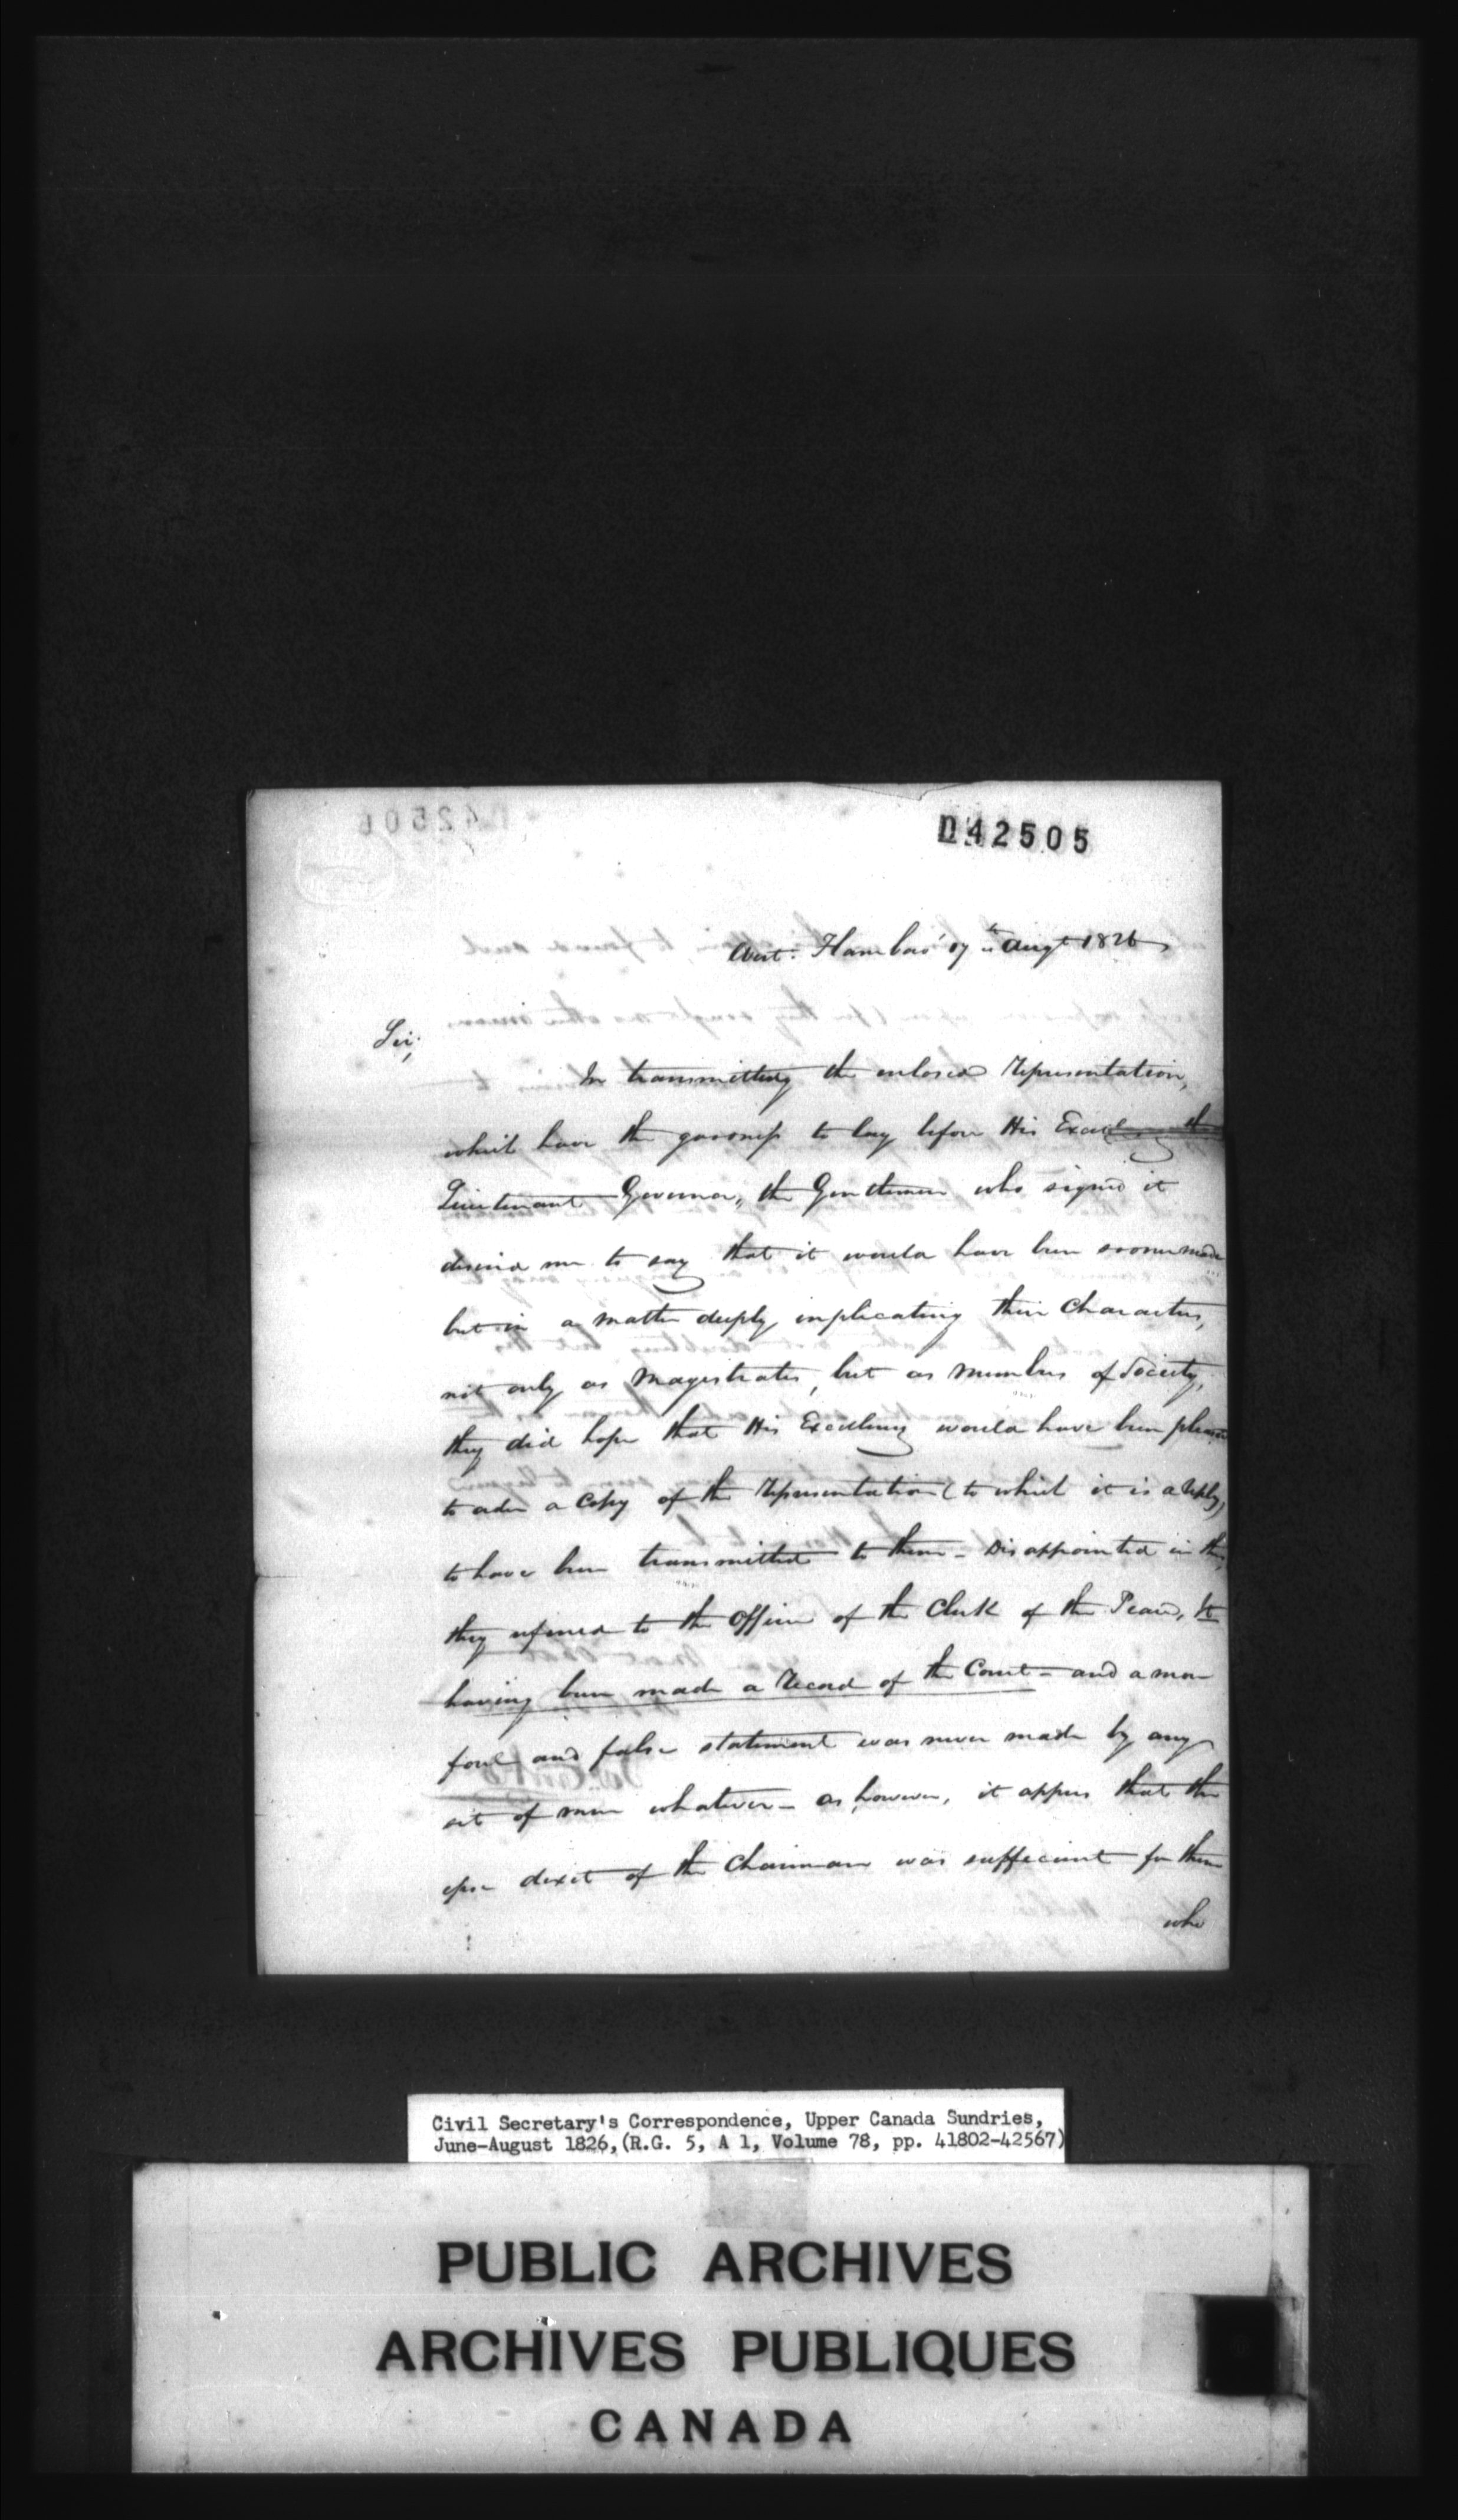 D42505
West Flamboro' 17th Augt 1826
Sir,
In transmitting the enclosed Representation,
which have the goodness to lay before His Excellency the
Lieutenant Governor, the Gentlemen who signed it
desired me to say that it would have been sooner made
but in a matter deeply implicating their Characters,
not only as Magistrates, but as members of Society,
they did hope that His Excellency would have been pleased
to order a Copy of the Representation (to which it is a reply)
to have been transmitted to them – Disappointed in this,
they referred to the Office of the Clerk of the Peace, it
having been made a Record of the Court – and a more
foul and false statement was never made by any
set of men whatever – as, however, it appears that the
ipse dixit of the Chairman was sufficient for them
who
Civil Secretary's Correspondence, Upper Canada Sundries,
June-August 1826, (R.G. 5, A 1, Volume 78, pp. 41802-42567)
PUBLIC ARCHIVES
ARCHIVES PUBLIQUES
CANADA